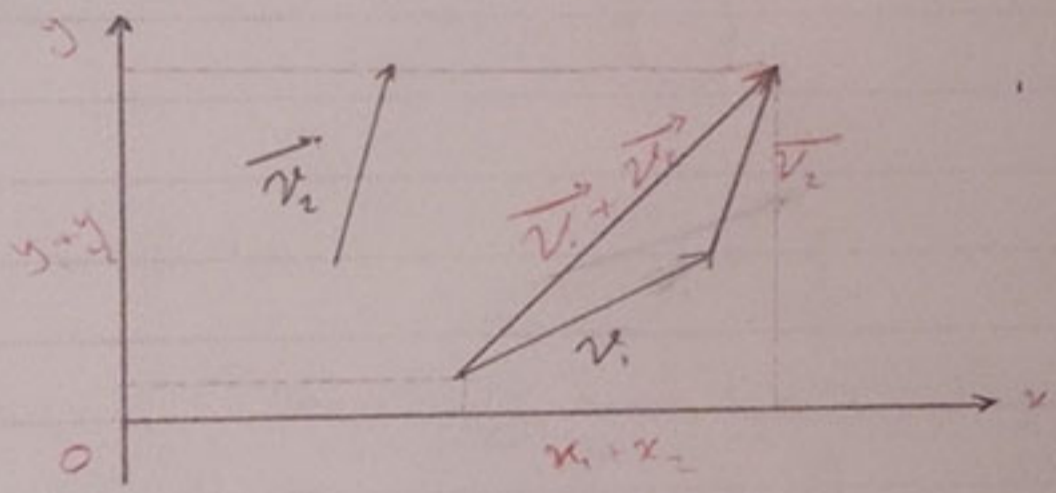 y
v₂
v₁ + v₂
v₂
y₁ + y₂
v₁
x
O
x₁ + x₂